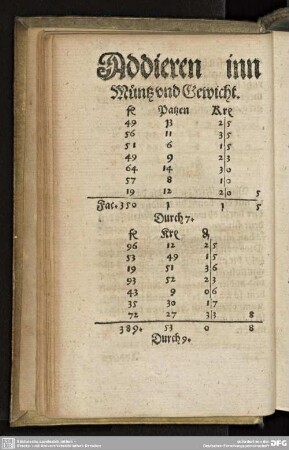 Addieren inn
Müntz vnd Gewicht.
fl Patzen Krz
49 13 2 5
56 11 3 5
51 6 1 5
49 9 2 3
64 14 3 0
57 8 1 0
19 12 2 0 5
Fac. 350 1 1 5
Durch 7.
fl Krz
96 12 2 5
53 49 1 5
19 51 3 6
93 52 2 3
43 9 0 6
35 30 1 7
72 27 3 3 8
389. 53 0 8
Durch 9.
DFG